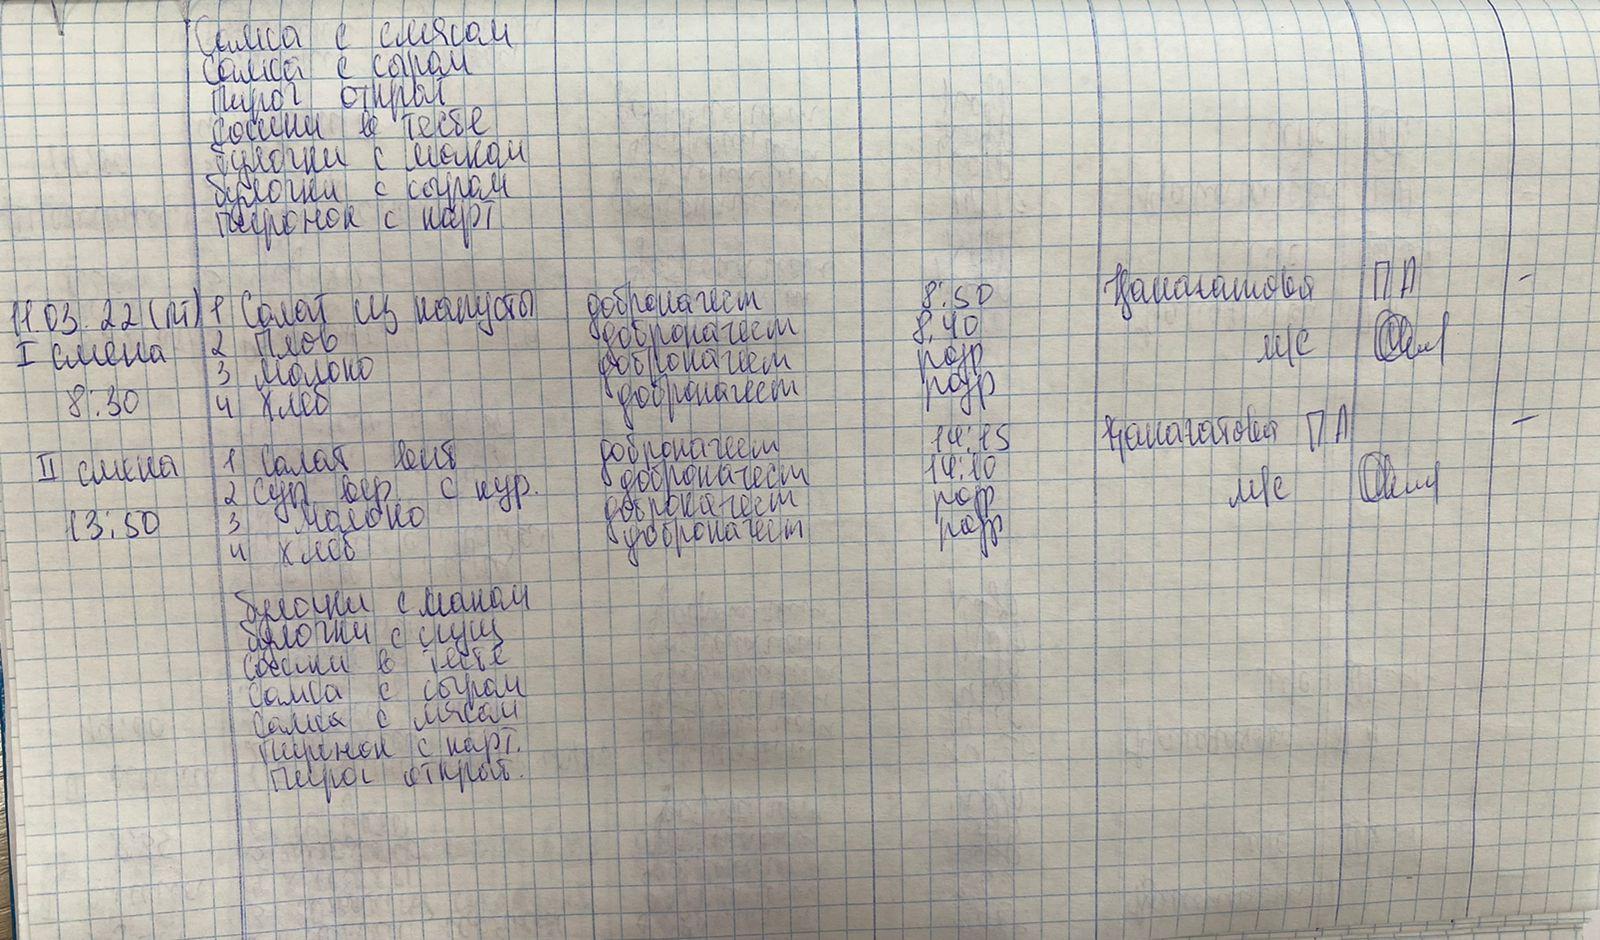 Самса с смясам
Самса с сырам
Пирог открый
Сосиски в тесте
булочки с маком
булочки с сырам
Пирожок с карт
11.03.22 (пт) 1 Салат из капусты доброкачест 8:50 ПА -
I смена 2 Плов доброкачест 8:40 м/с
3 Молоко доброкачест разр
8:30 4 Хлеб доброкачест разр
II смена 1 Салат вит доброкачест 14:15 ПА -
2 Суп вер. с кур. доброкачест 14:10 м/с
13:50 3 Молоко доброкачест разр
4 Хлеб доброкачест разр
булочки с маком
булочки с сгущ
Сосиски в тесте
Самса с сырам
Самса с мясам
Пирожок с карт.
Пирог открый.